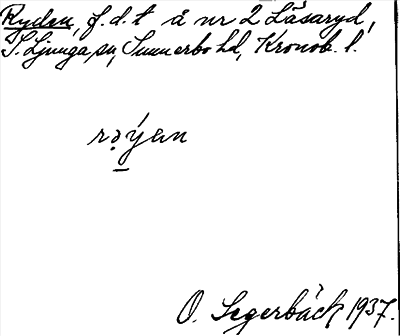 Ryden, f.d.t å nr 2 Låsaryd,
S. Ljunga sn, Sunnerbo hd, Kronob. l.
rǝýen
O. Segerbäck 1937.